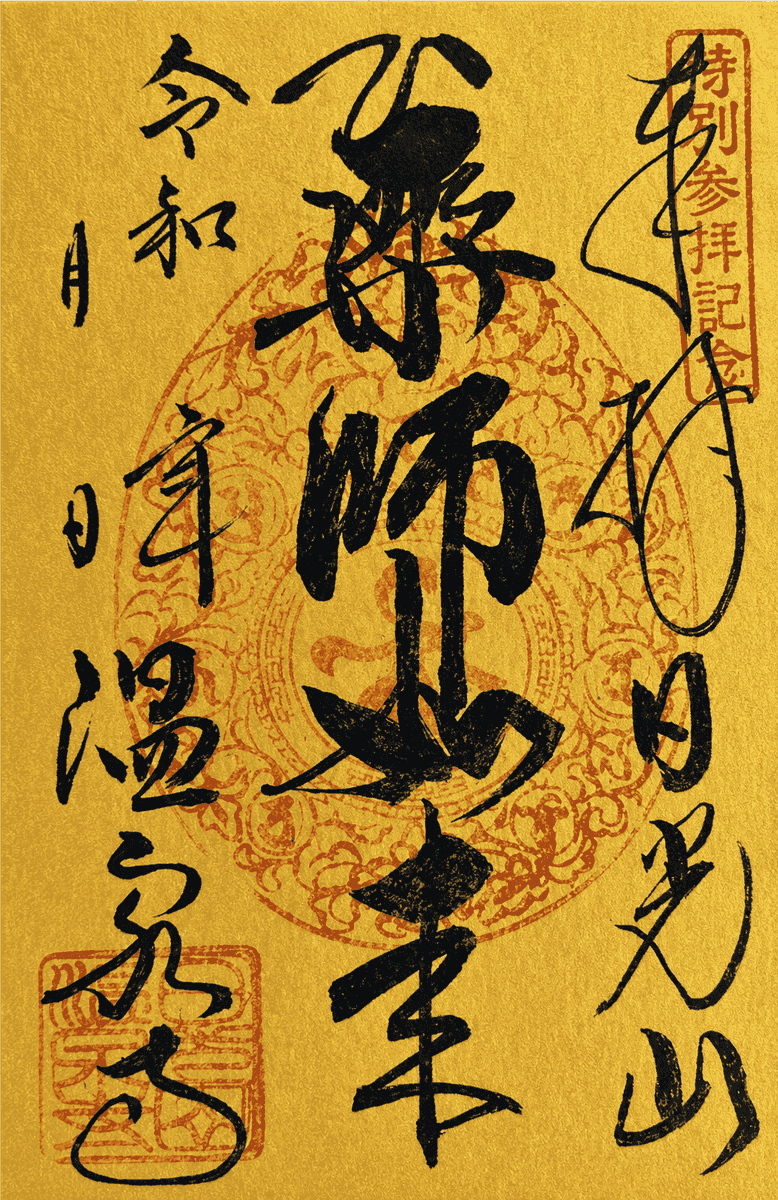 特別参拝記念
奉拝 日光山
薬師如来
令和 年 月 日
温泉寺